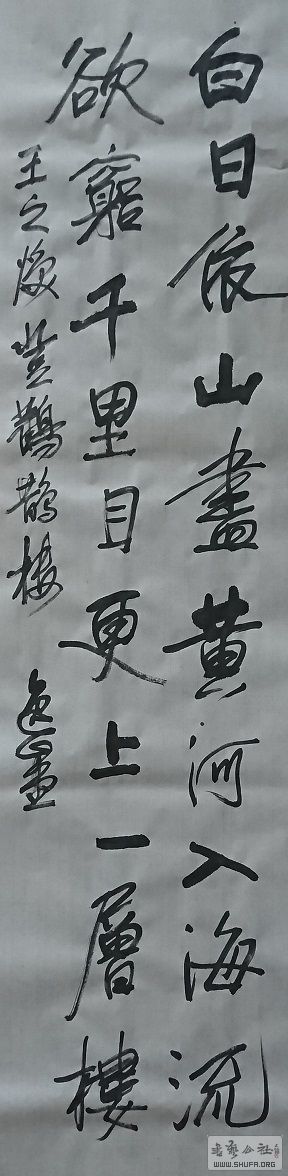 白日依山盡黄河入海流
欲窮千里目更上一層樓
王之焕登鸛鵲楼
书艺公社
WWW.SHUFA.ORG